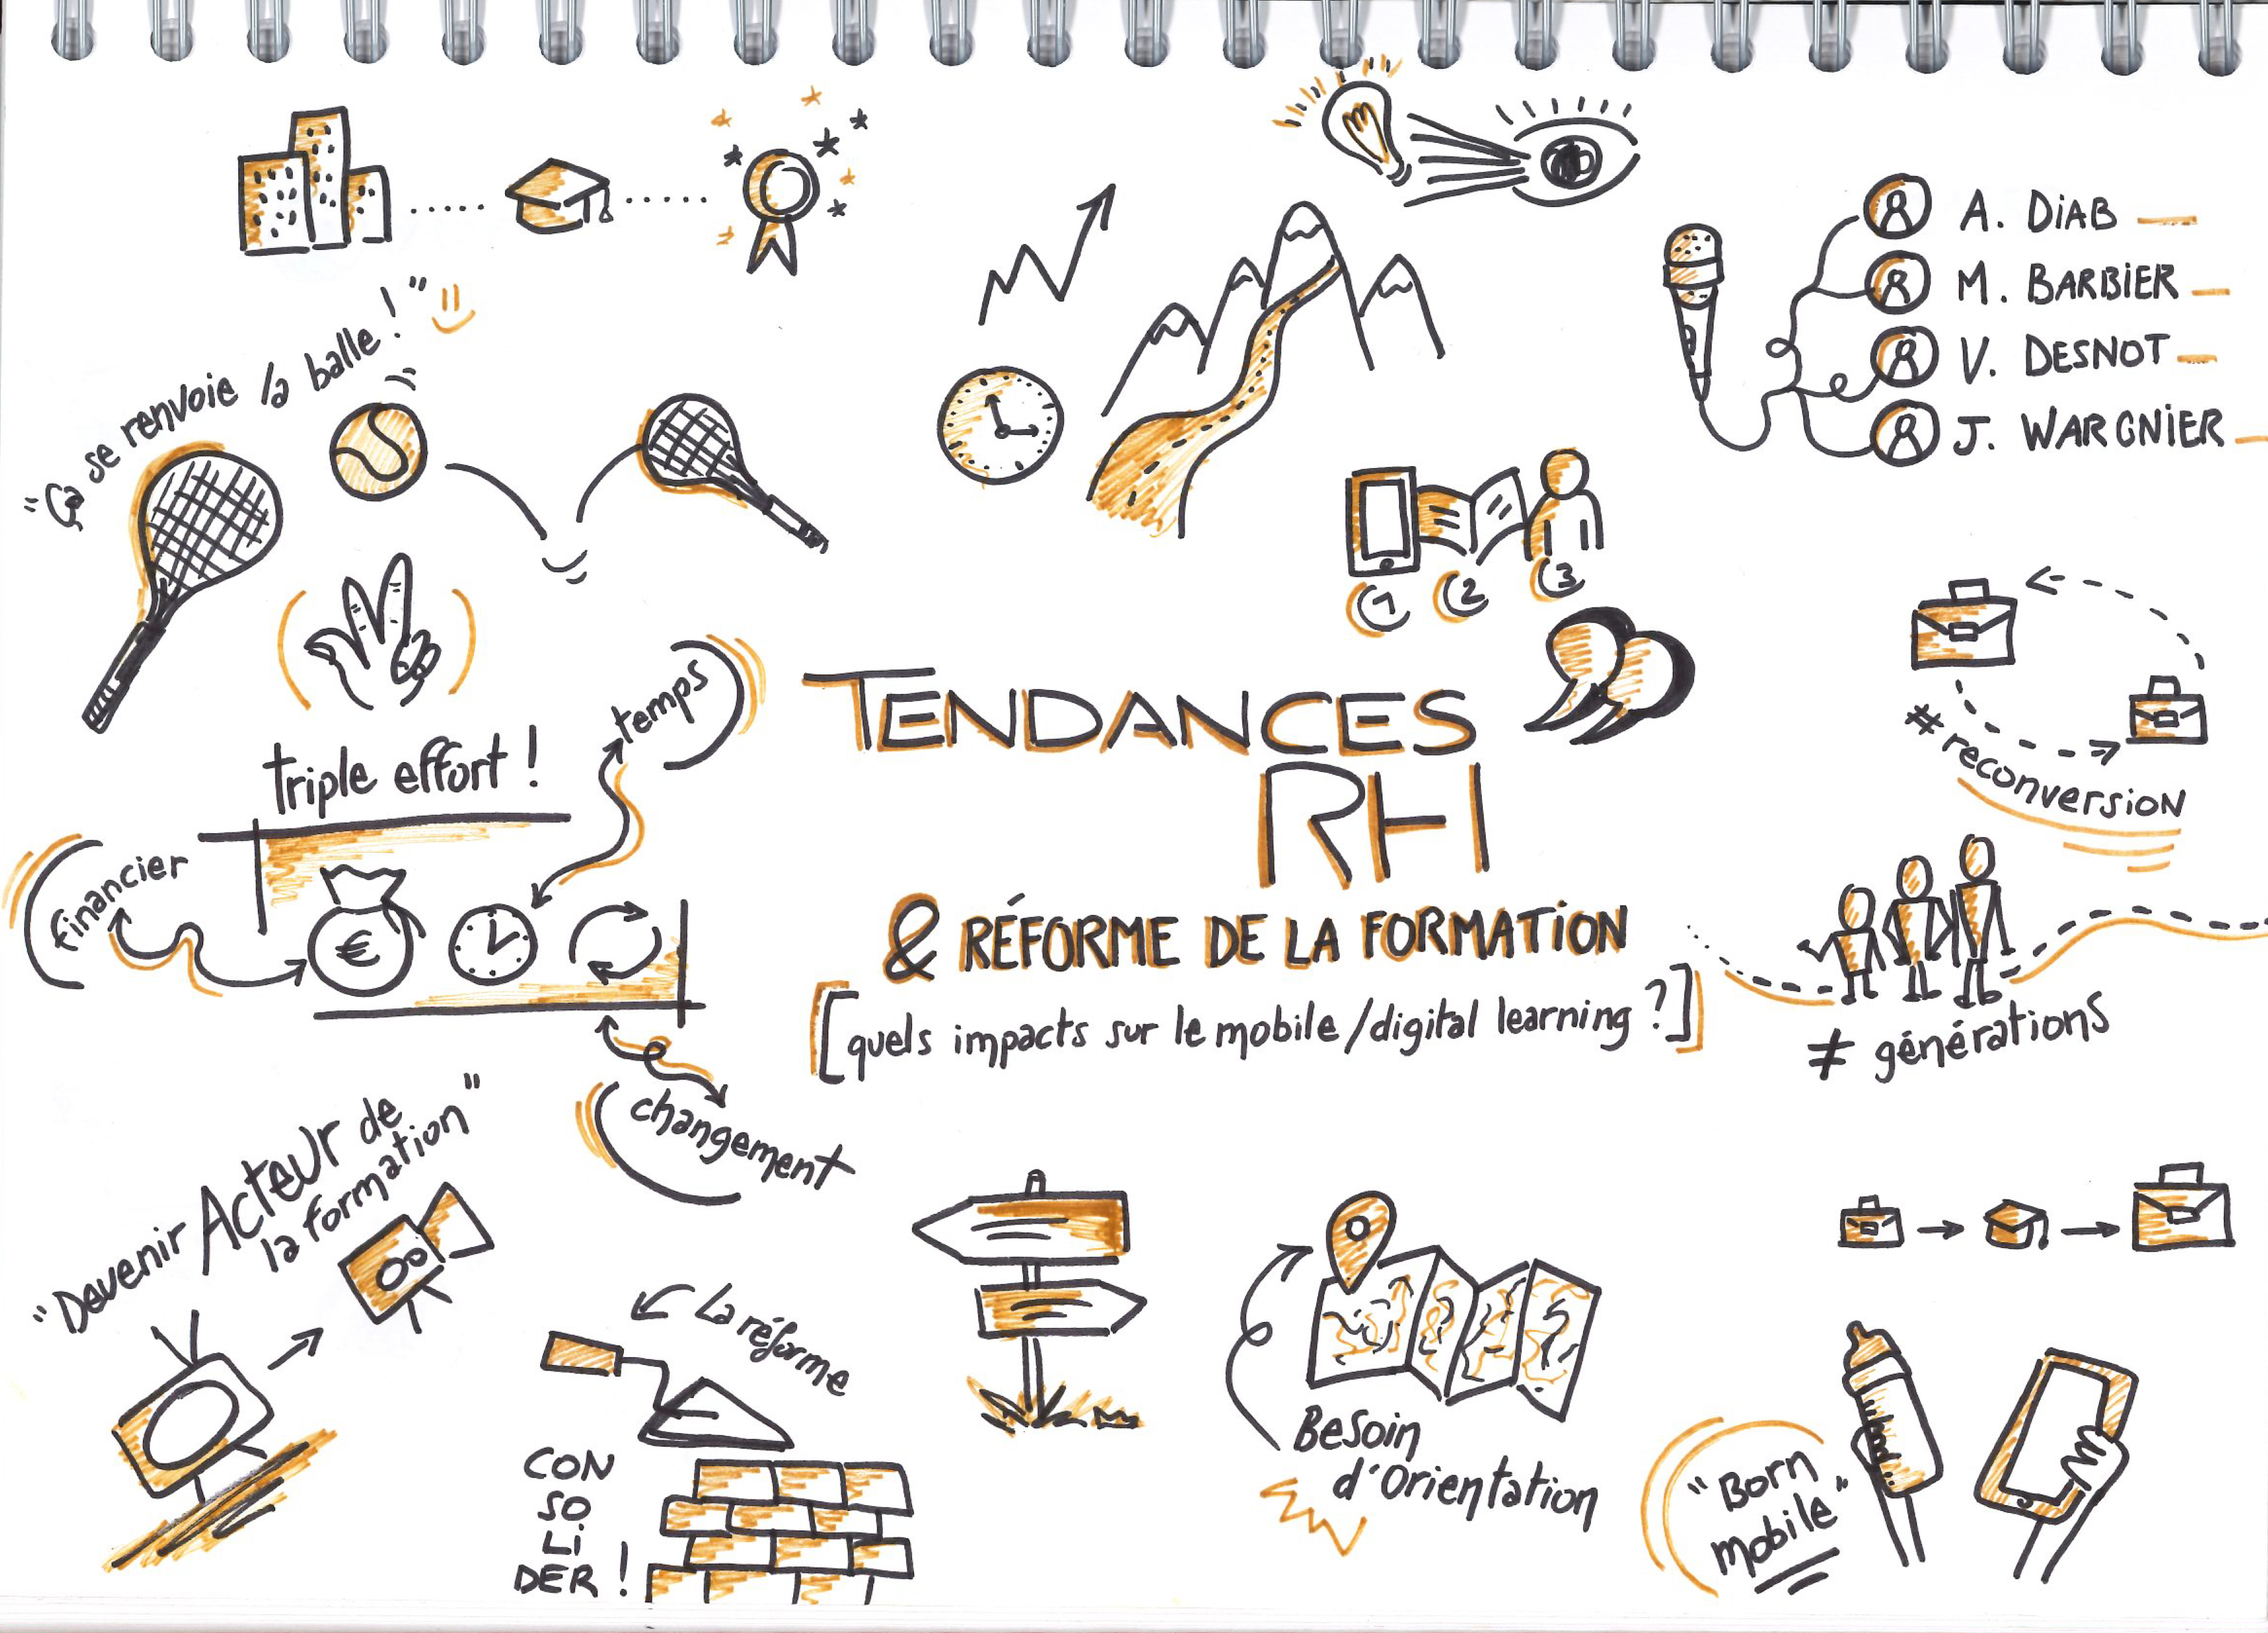 A. DiAB
M. BARBiER
V. DESNOT
J. WARGNiER
"Ça se renvoie la balle!"
1 2 3
triple effort!
temps
financier
€
changement
TENDANCES
RH
& RÉFORME DE LA FORMATiON
[quels impacts sur le mobile/digital learning ?]
#reconversioN
≠ générations
"Devenir Acteur de
la formation"
La réforme
CON
SO
Li
DER !
Besoin
d'Orientation
"Born
mobile"